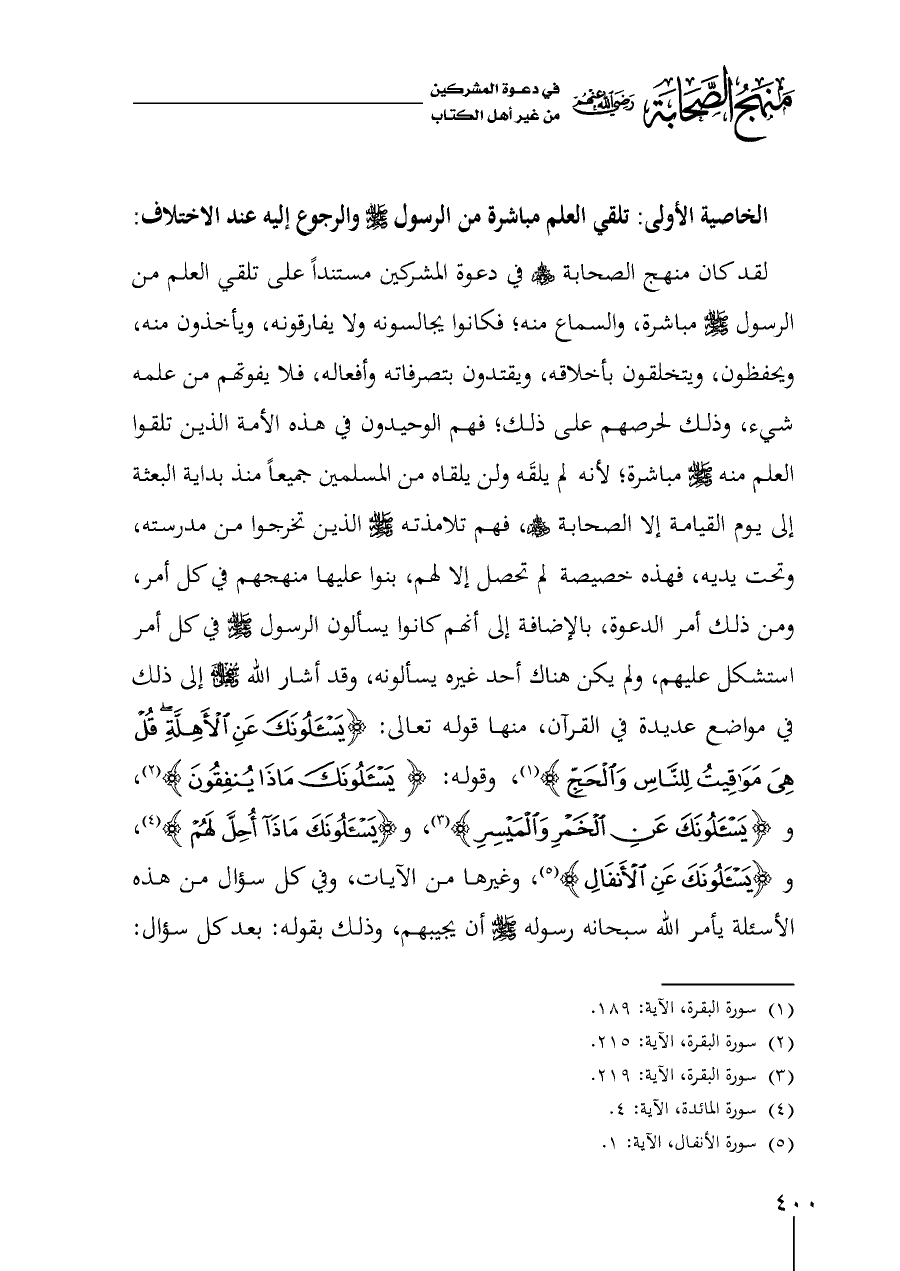 منهج الصحابة رضي الله عنهم
في دعوة المشركين
من غير أهل الكتاب
الخاصية الأولى: تلقي العلم مباشرة من الرسول ﷺ والرجوع إليه عند الاختلاف:
لقد كان منهج الصحابة ﷺ في دعوة المشركين مستنداً على تلقي العلم من
الرسول ﷺ مباشرة، والسماع منه؛ فكانوا يجالسونه ولا يفارقونه، ويأخذون منه،
ويحفظون، ويتخلقون بأخلاقه، ويقتدون بتصرفاته وأفعاله، فلا يفوتهم من علمه
شيء، وذلك لحرصهم على ذلك؛ فهم الوحيدون في هذه الأمة الذين تلقوا
العلم منه ﷺ مباشرة؛ لأنه لم يلقَه ولن يلقاه من المسلمين جميعاً منذ بداية البعثة
إلى يوم القيامة إلا الصحابة ﷺ، فهم تلامذته ﷺ الذين تخرجوا من مدرسته،
وتحت يديه، فهذه خصيصة لم تحصل إلا لهم، بنوا عليها منهجهم في كل أمر،
ومن ذلك أمر الدعوة، بالإضافة إلى أنهم كانوا يسألون الرسول ﷺ في كل أمر
استشكل عليهم، ولم يكن هناك أحد غيره يسألونه، وقد أشار الله ﷻ إلى ذلك
في مواضع عديدة في القرآن، منها قوله تعالى: ﴿يَسْـَٔلُونَكَ عَنِ ٱلْأَهِلَّةِۖ قُلْ
هِىَ مَوَٰقِيتُ لِلنَّاسِ وَٱلْحَجِّ﴾(١)، وقوله: ﴿يَسْـَٔلُونَكَ مَاذَا يُنفِقُونَ﴾(٢)،
و ﴿يَسْـَٔلُونَكَ عَنِ ٱلْخَمْرِ وَٱلْمَيْسِرِ﴾(٣)، و﴿يَسْـَٔلُونَكَ مَاذَآ أُحِلَّ لَهُمْ﴾(٤)،
و ﴿يَسْـَٔلُونَكَ عَنِ ٱلْأَنفَالِ﴾(٥)، وغيرها من الآيات، وفي كل سؤال من هذه
الأسئلة يأمر الله سبحانه رسوله ﷺ أن يجيبهم، وذلك بقوله: بعد كل سؤال:
(١) سورة البقرة، الآية: ١٨٩.
(٢) سورة البقرة، الآية: ٢١٥.
(٣) سورة البقرة، الآية: ٢١٩.
(٤) سورة المائدة، الآية: ٤.
(٥) سورة الأنفال، الآية: ١.
٤٠٠